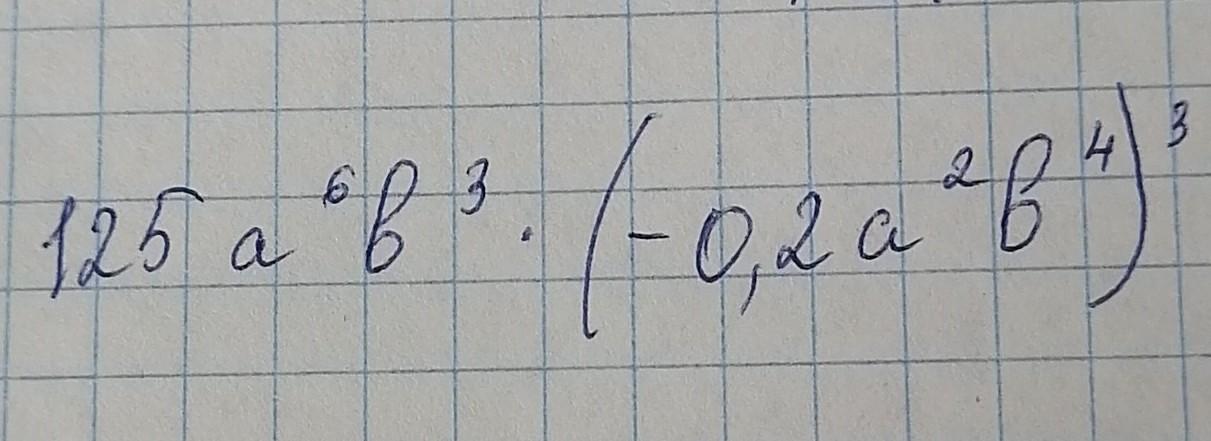 125 a⁶в³ · (-0,2 a²в⁴)³